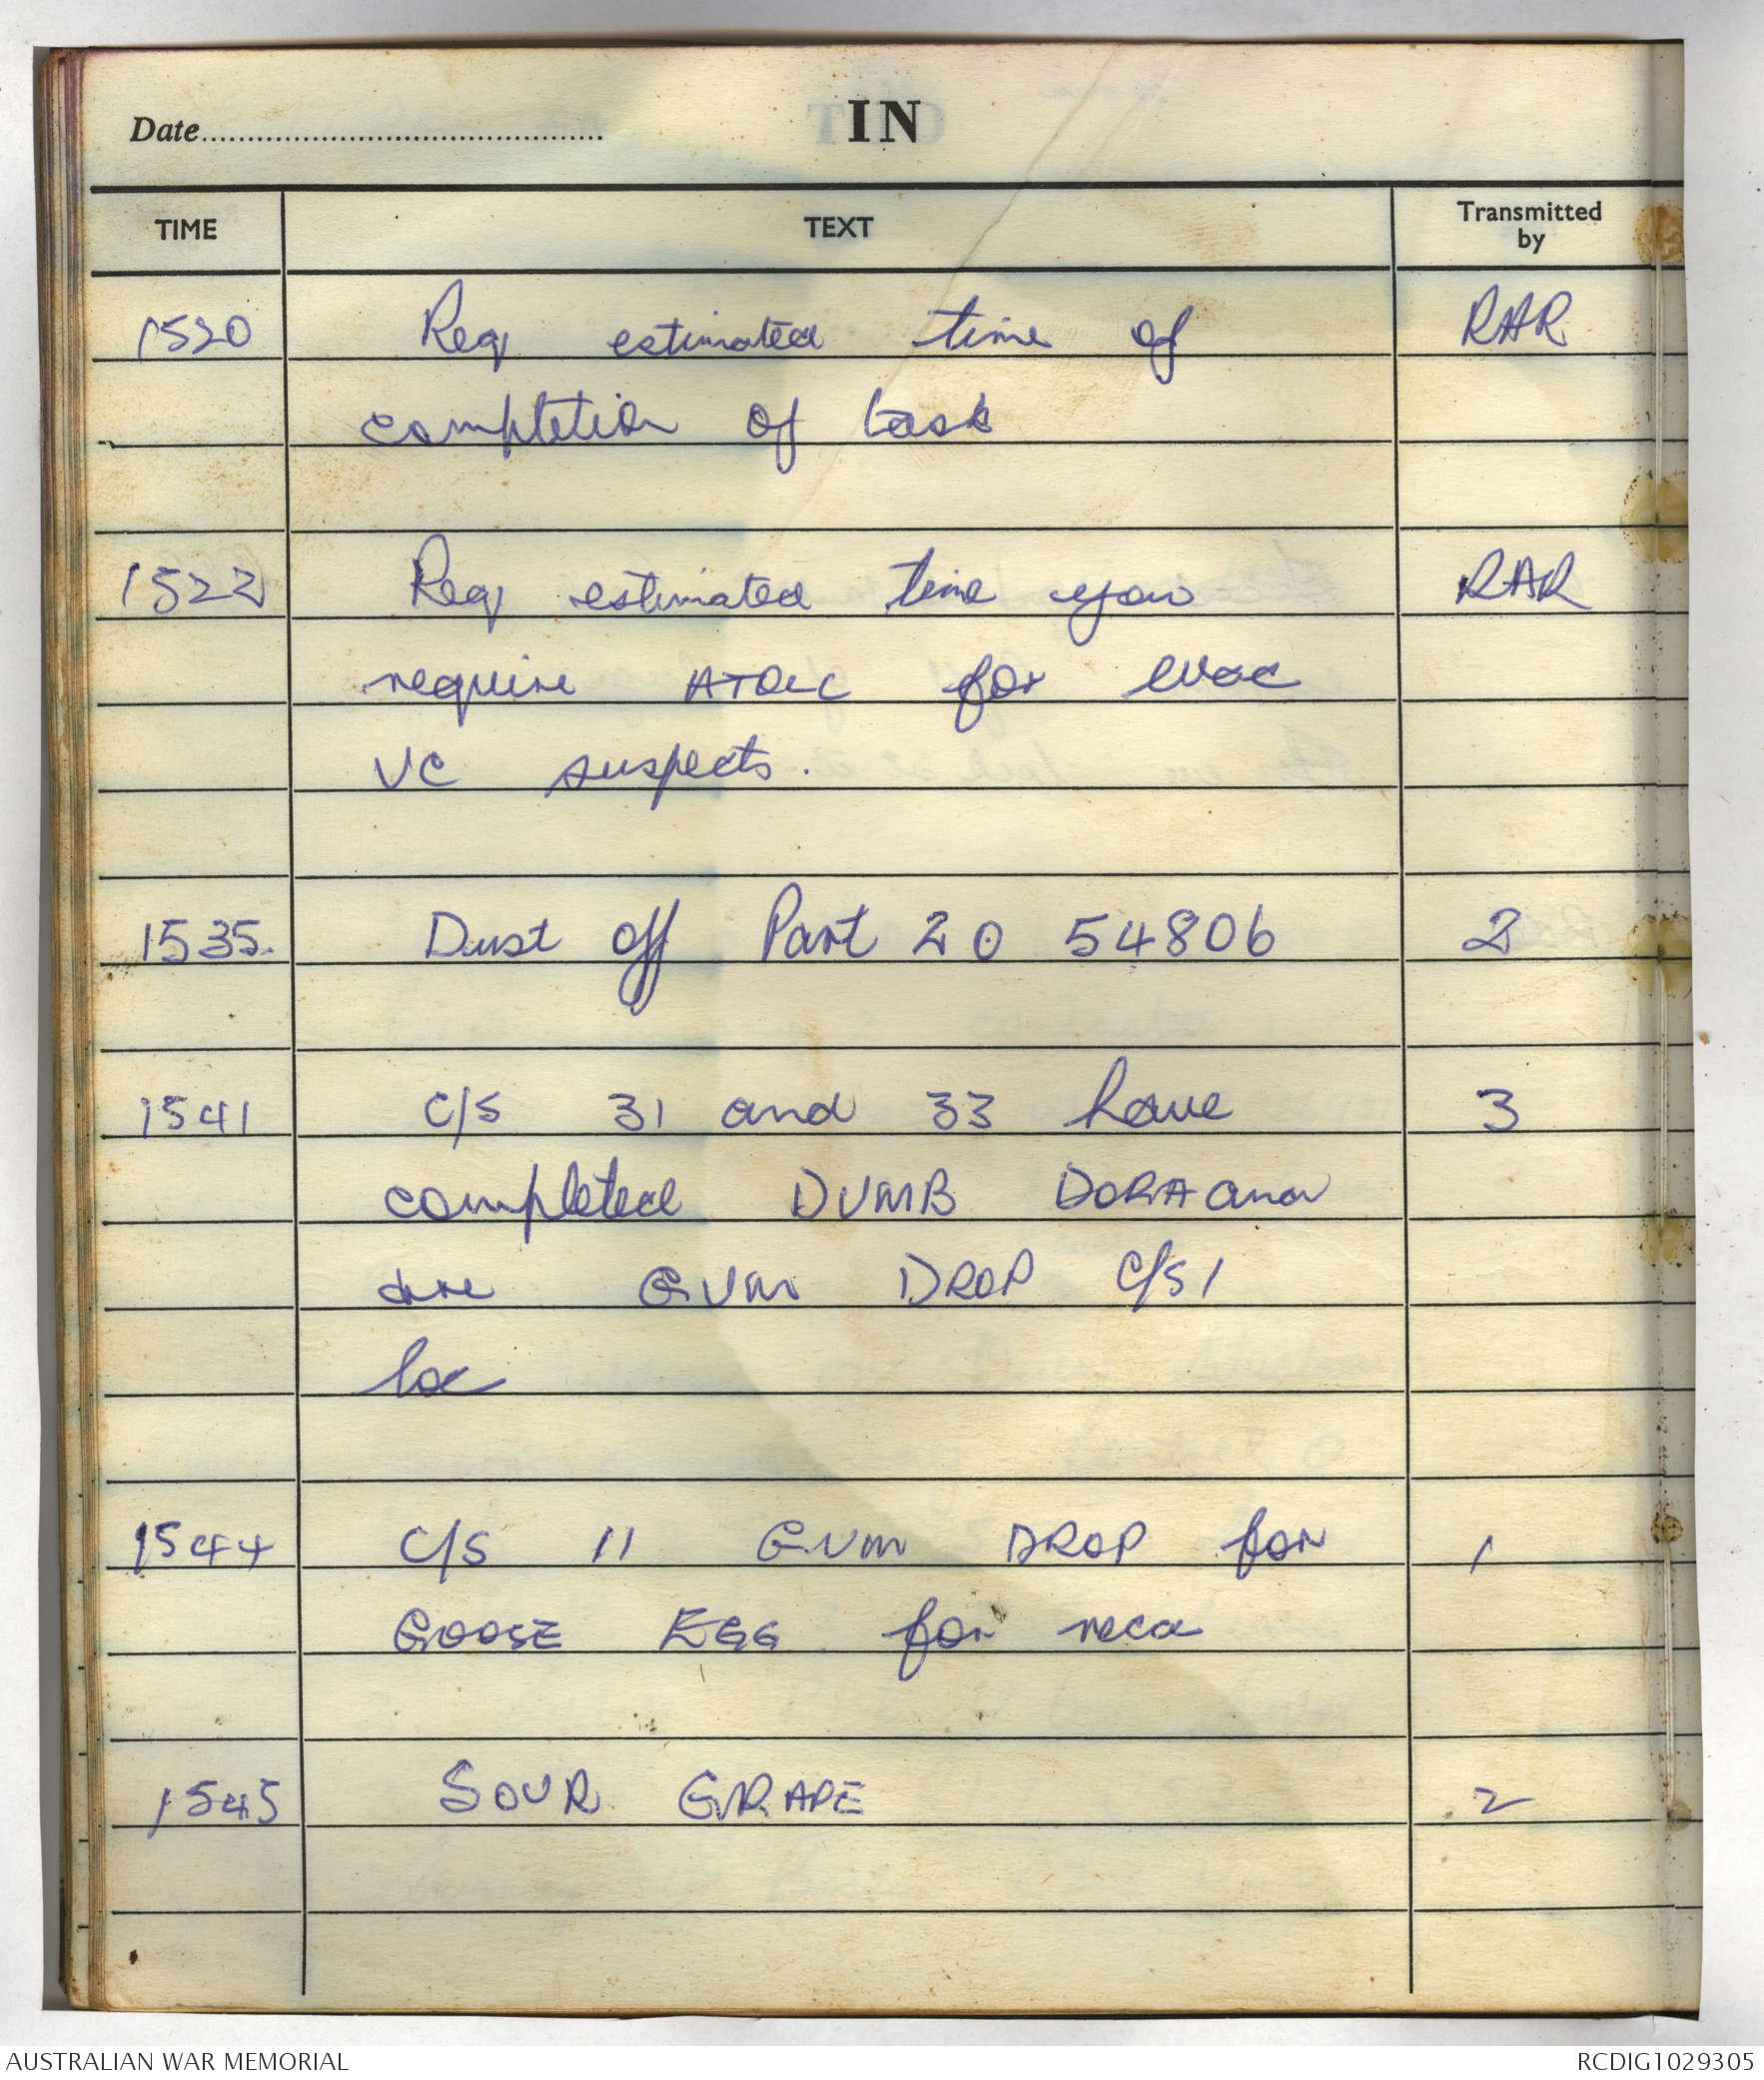 Date
IN
TIME TEXT Transmitted by
1520 Req estimated time of RAR
completion of task
1522 Req estimated time you RAR
require for evac
VC suspects.
1535. Dust off Part 20 54806 2
1541 C/S 31 and 33 have 3
completed DUMB DORA and
are GUM DROP C/S 1
loc
1544 C/S 11 GUM DROP for 1
GOOSE EGG for
1545 SOUR GRAPE 2
AUSTRALIAN WAR MEMORIAL RCDIG1029305